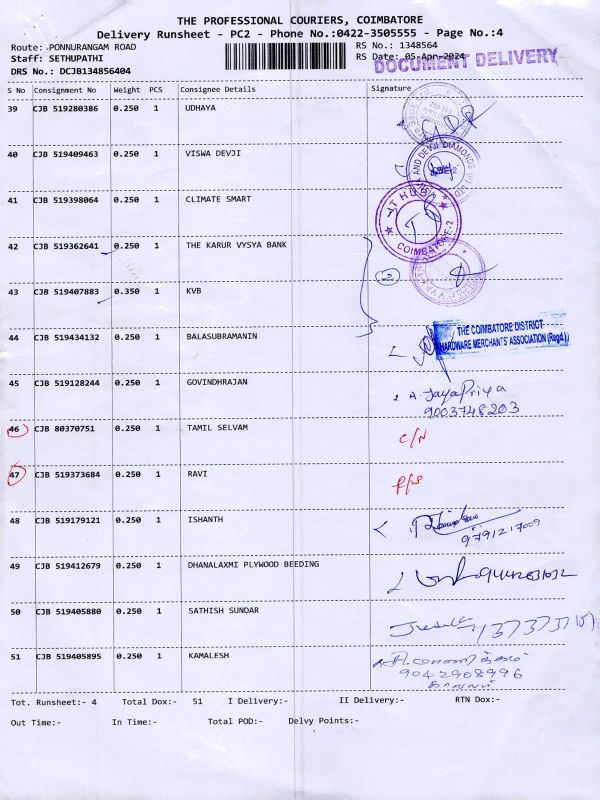 THE PROFESSIONAL COURIERS, COIMBATORE
Delivery Runsheet - PC2 - Phone No.:0422-3505555 - Page No.:4
Route: PONNURANGAM ROAD RS No.: 1348564
Staff: SETHUPATHI RS Date: 05-Apr-2024
DOCUMENT DELIVERY
DRS No.: DCJB134856404
S No Consignment No Weight PCS Consignee Details Signature
39 CJB 519280386 0.250 1 UDHAYA
40 CJB 519409463 0.250 1 VISWA DEVJI
AND DEVJI DIAMONDS
41 CJB 519398064 0.250 1 CLIMATE SMART
IT HUB
COIMBATORE-2
42 CJB 519362641 0.250 1 THE KARUR VYSYA BANK
2
43 CJB 519407883 0.350 1 KVB
44 CJB 519434132 0.250 1 BALASUBRAMANIN
THE COIMBATORE DISTRICT
HARDWARE MERCHANTS' ASSOCIATION (Regd.)
45 CJB 519128244 0.250 1 GOVINDHRAJAN
A. JayaPriya
9003748203
46 CJB 80370751 0.250 1 TAMIL SELVAM
C/N
47 CJB 519373684 0.250 1 RAVI
P/S
48 CJB 519179121 0.250 1 ISHANTH
9791217009
49 CJB 519412679 0.250 1 DHANALAXMI PLYWOOD BEEDING
50 CJB 519405880 0.250 1 SATHISH SUNDAR
51 CJB 519405895 0.250 1 KAMALESH
9042908996
Tot. Runsheet:- 4 Total Dox:- 51 I Delivery:- II Delivery:- RTN Dox:-
Out Time:- In Time:- Total POD:- Delvy Points:-